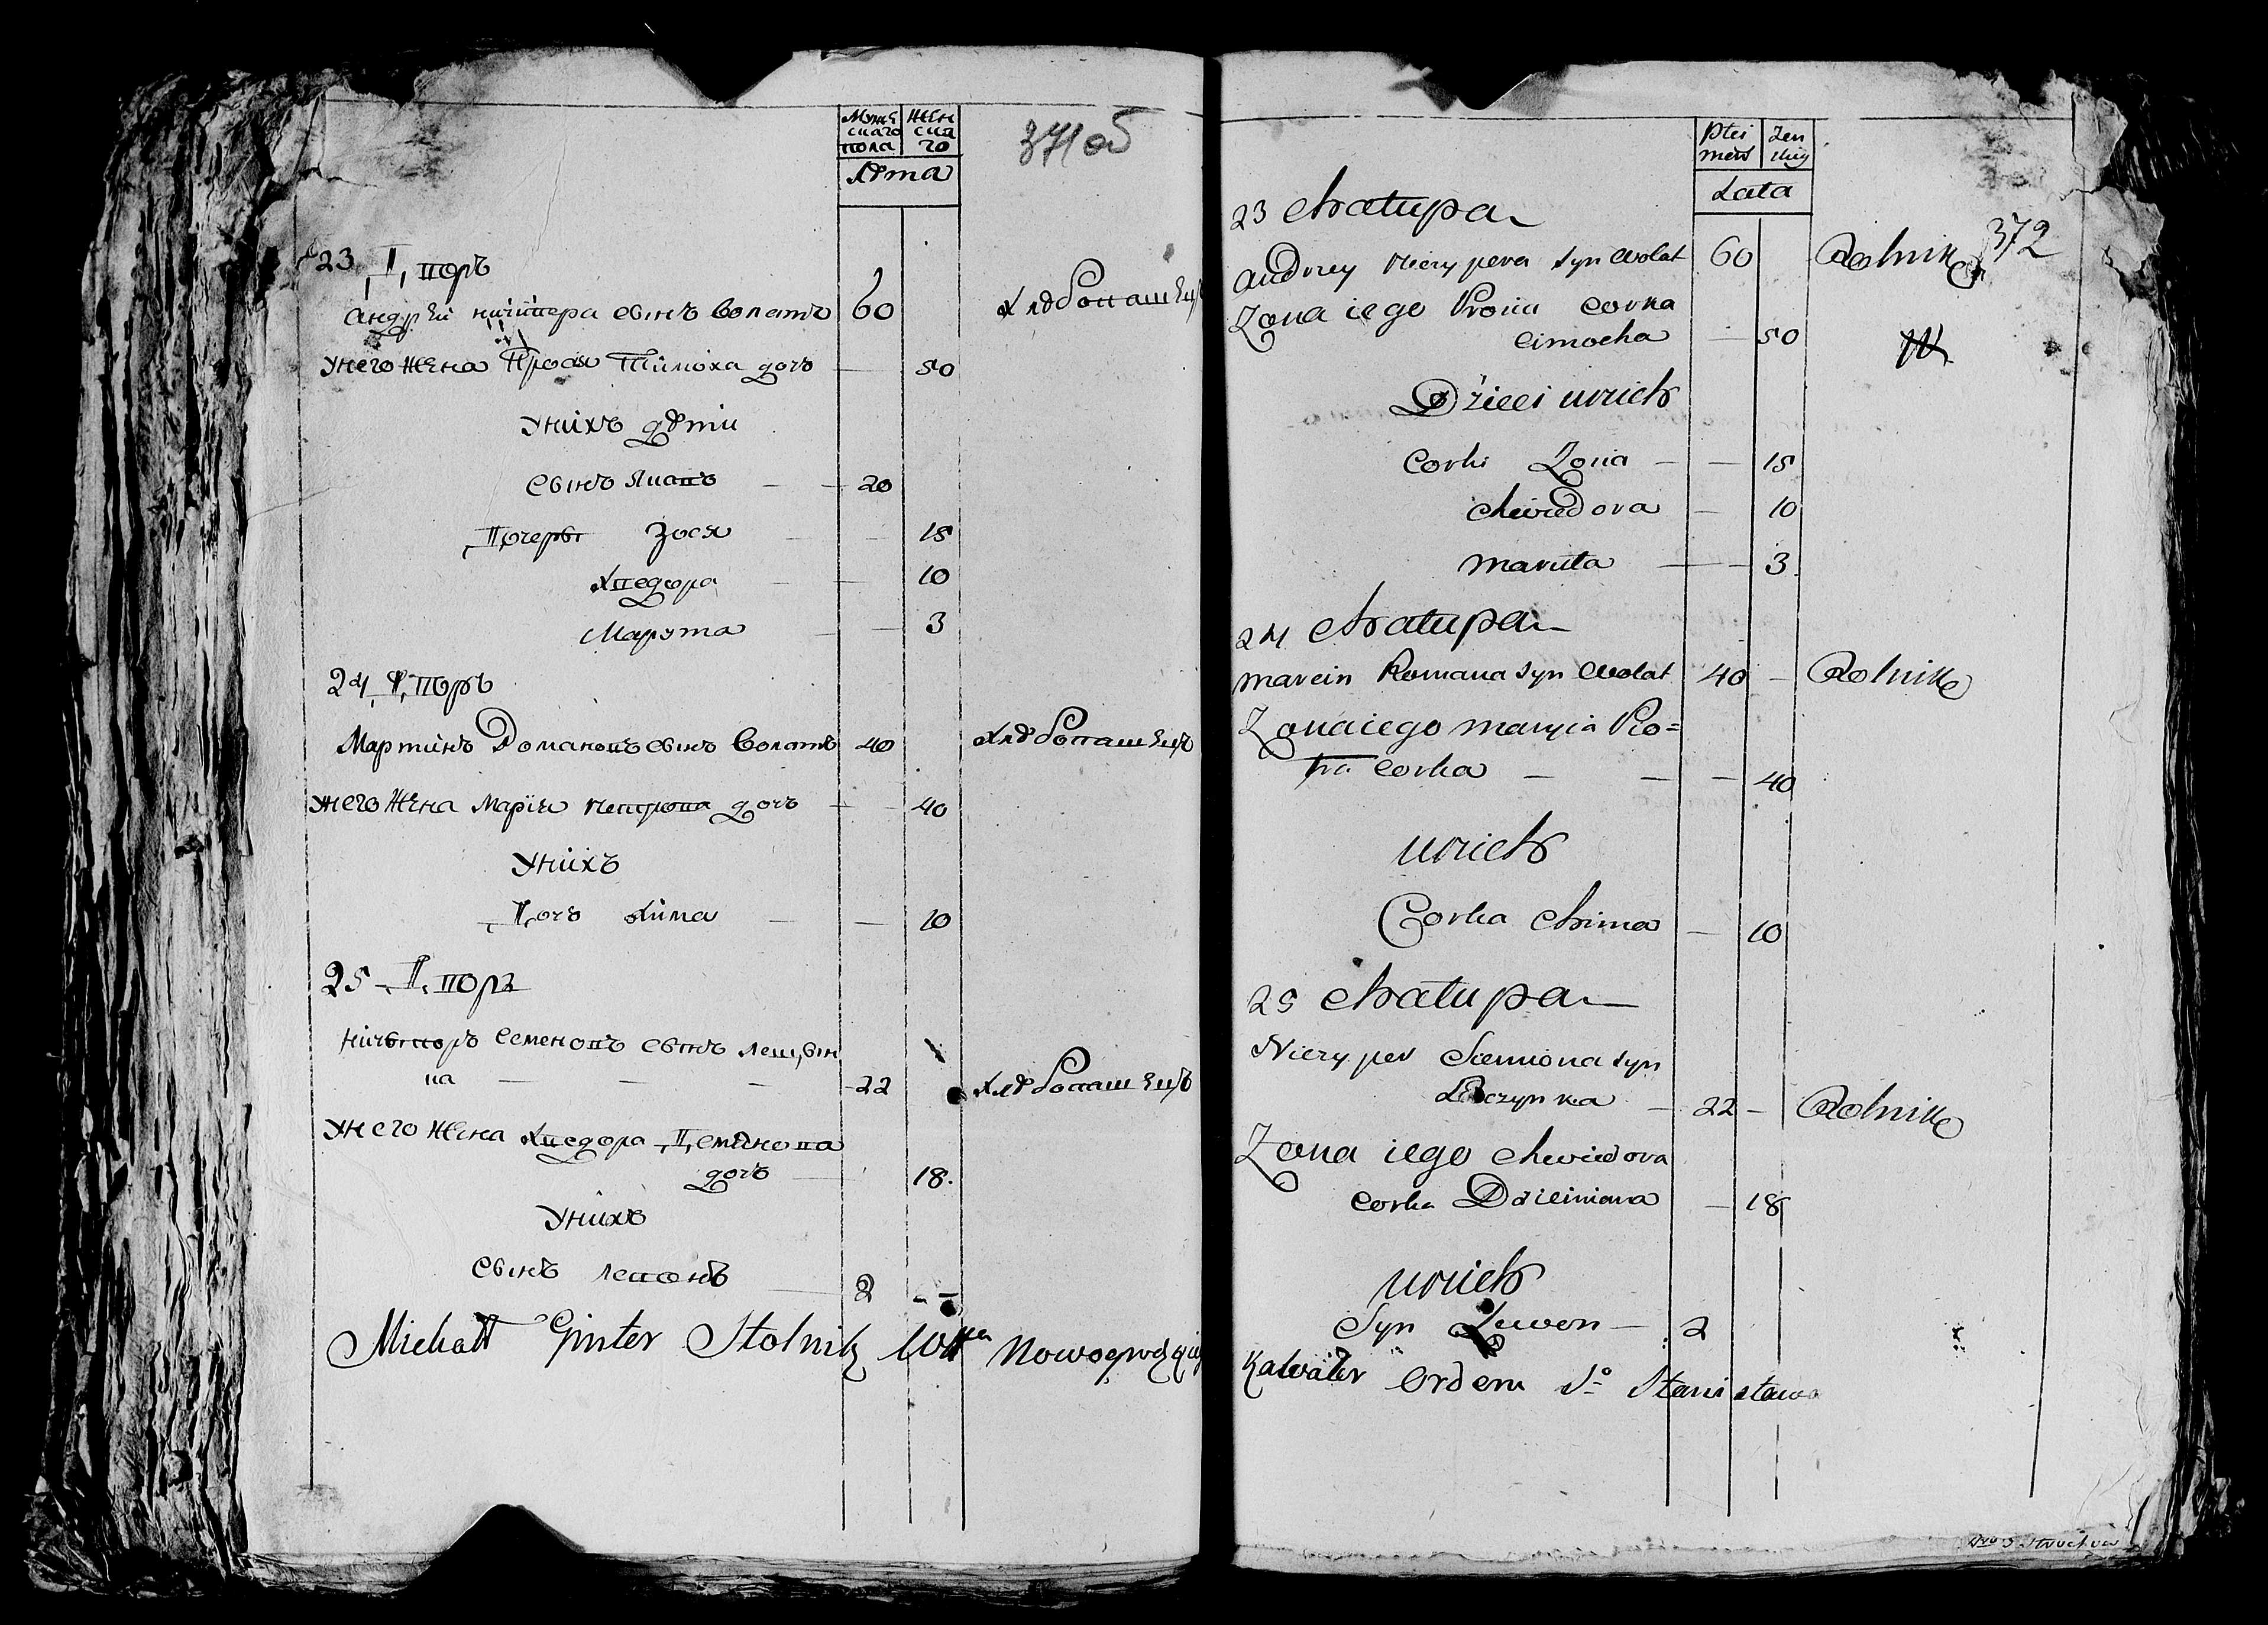 Муже Жен
скаго ска
пола го
Лѣта
371 об
23 Дворъ
Андрѣй Ничипера сынъ Волатъ 60 Хлѣбопашецъ
У него жена Прося Тимоха дочь — 50
У нихъ дѣти
Сынъ — — 20
Дочеры Зося — — 15
Хведора — — 10
Марута — — 3
24 Дворъ
Мартинъ Романовъ сынъ Волатъ 40 Хлѣбопашецъ
У него жена Марія дочь — — 40
У нихъ
Дочь Хима — — 10
25 Дворъ
Ничыпоръ Семеновъ сынъ Лещын
ка — — — 22 Хлѣбопашецъ
У него жена Хведора Демянова
дочь — 18.
У нихъ
Сынъ Левонъ — 2 — —
Michał Ginter Stolnik Nowogrodzki
Płci Zen
męs skiey
Lata
372
23 Chałupa
Andrzey Niczypera syn Wołat 60 Rolnik
Zona iego Prosia corka
Cimocha — 50
Dzieci u nich
Corki Zosia — — 15
Chwiedora — 10
Maruta — — 3.
24 Chałupa
Marcin Romana syn Wołat 40 — Rolnik
Zona iego Maryia Pio=
tra corka — — — 40
u nich
Corka Chima — 10
25 Chałupa
Niczyper Siemiona syn
Leszczynka — 22 — Rolnik
Zona iego Chwiedora
corka Dziemiana — 18
u nich
Syn Lewon — 2
Kawaler Orderu S° Stanisława